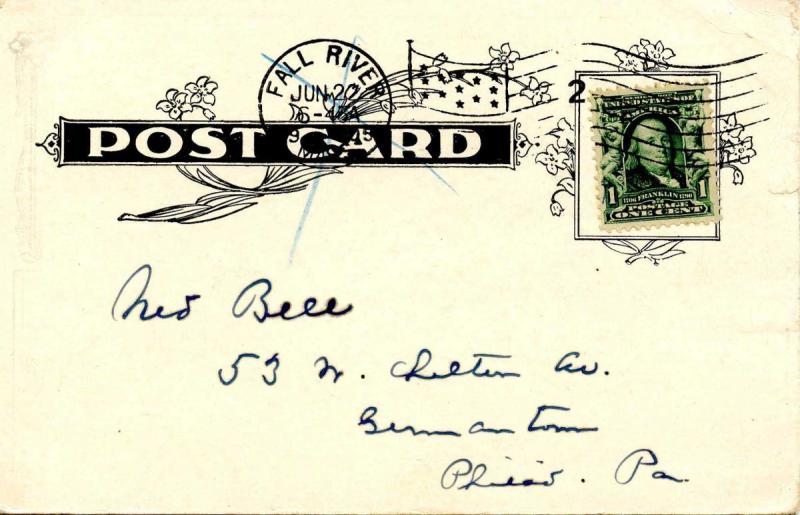 FALL RIVER
JUN 20
MASS
2
POST CARD
UNITED STATES OF
1 1
1706 FRANKLIN 1790
POSTAGE
ONE CENT
Ned Bell
53 W. Chelten Av.
Germantown
Philad. Pa.